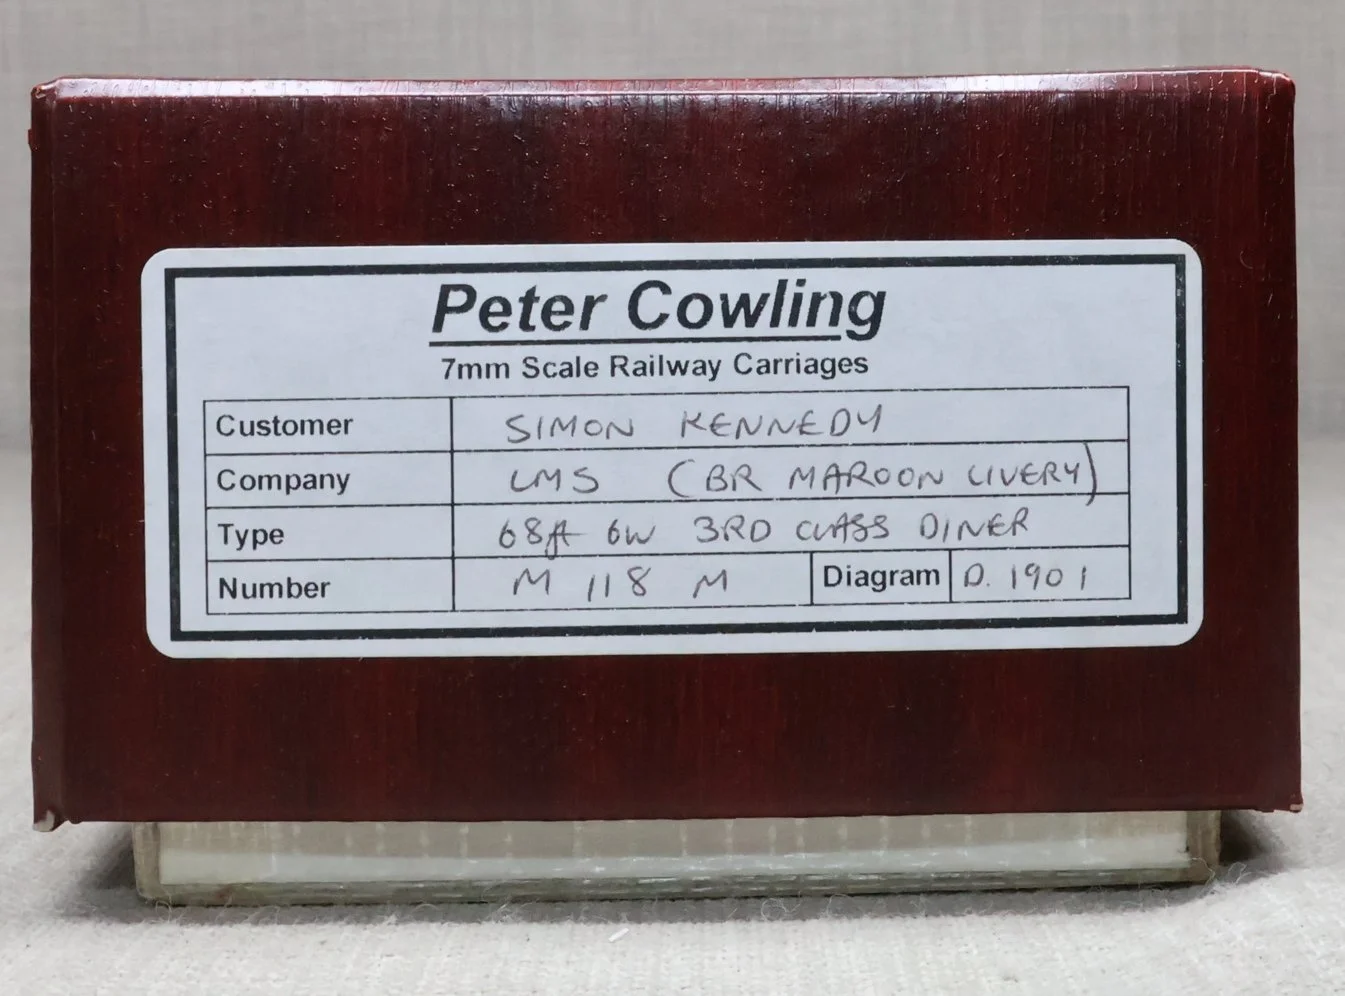 Peter Cowling
7mm Scale Railway Carriages
Customer SIMON KENNEDY
Company LMS (BR MAROON LIVERY)
Type 68ft 6W 3RD CLASS DINER
Number M 118 M Diagram D. 1901